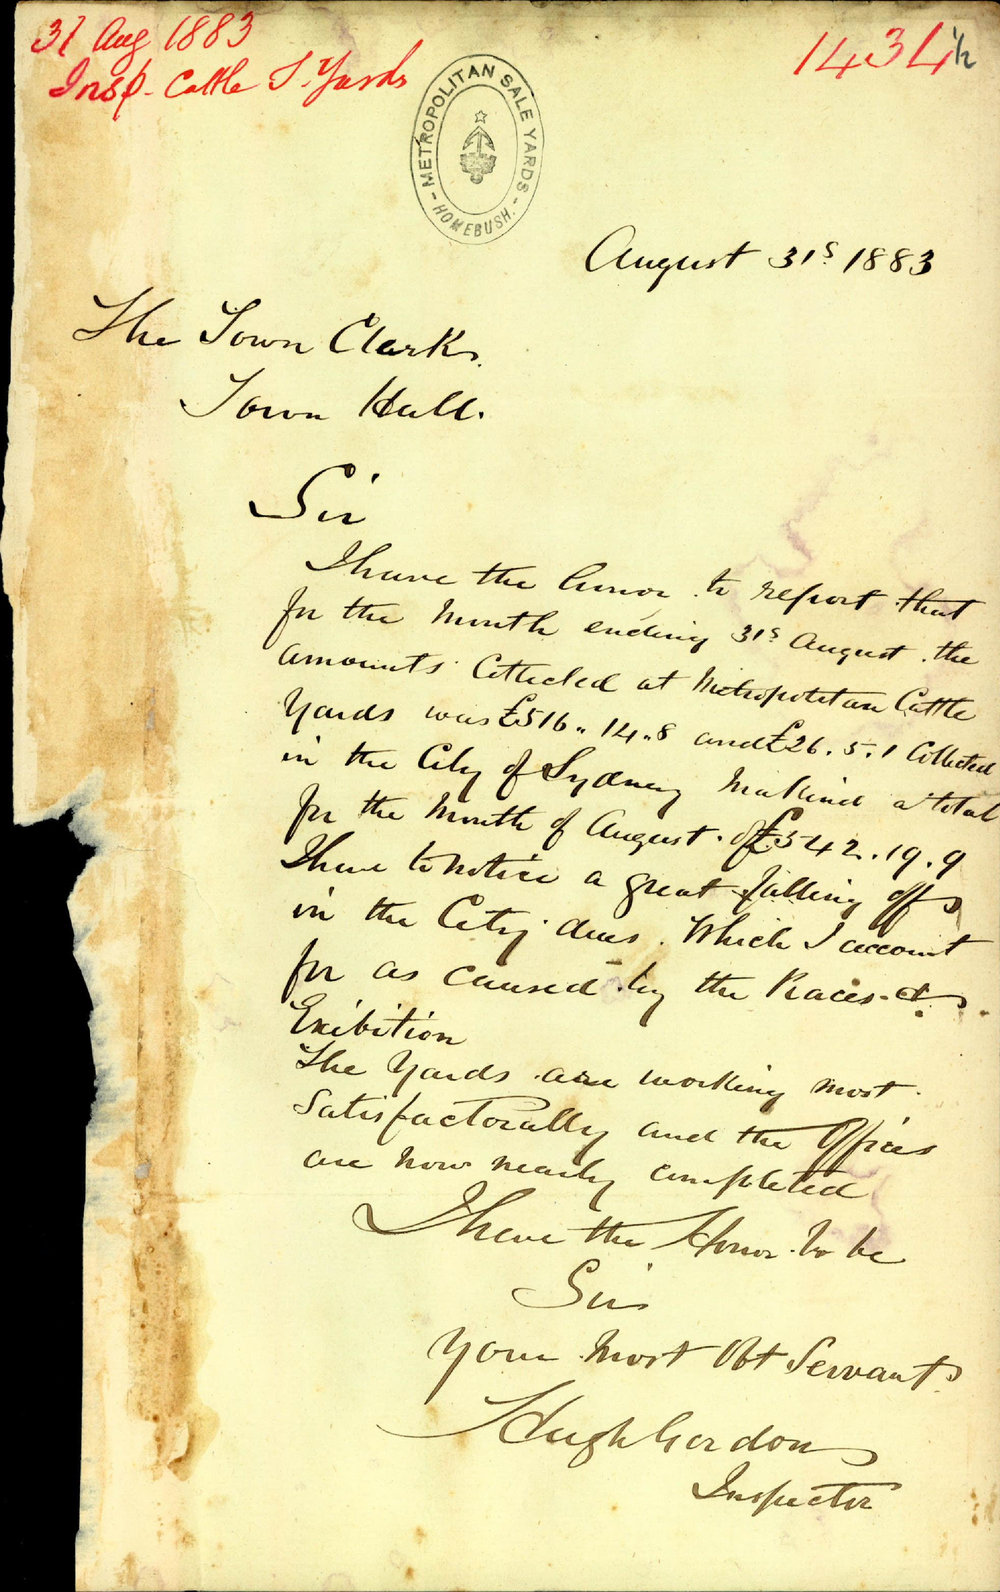 31 Aug 1883
Insp. Cattle S. Yards
1434 1/2
METROPOLITAN SALE YARDS
HOMEBUSH.
August 31s 1883
The Town Clark
Town Hall.
Sir
I have the honor to report that
for the Month ending 31s August. the
amounts Collected at Metropolitan Cattle
Yards was £516.. 14..8 and £26. 5. 1 Collected
in the City of Sydney Makind a total
for the Month of August. of £542. 19. 9
I have to notice a great falling off
in the City dues. Which I account
for as caused by the Races &
Exibition
The Yards are working most
Satisfactorally and the Offices
are now nearly completed
I have the Honor to be
Sir
Your Most Obt Servant
Hugh Gordon
Inspector